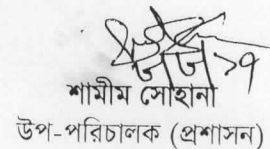 শামীম সোহানা
উপ-পরিচালক (প্রশাসন)